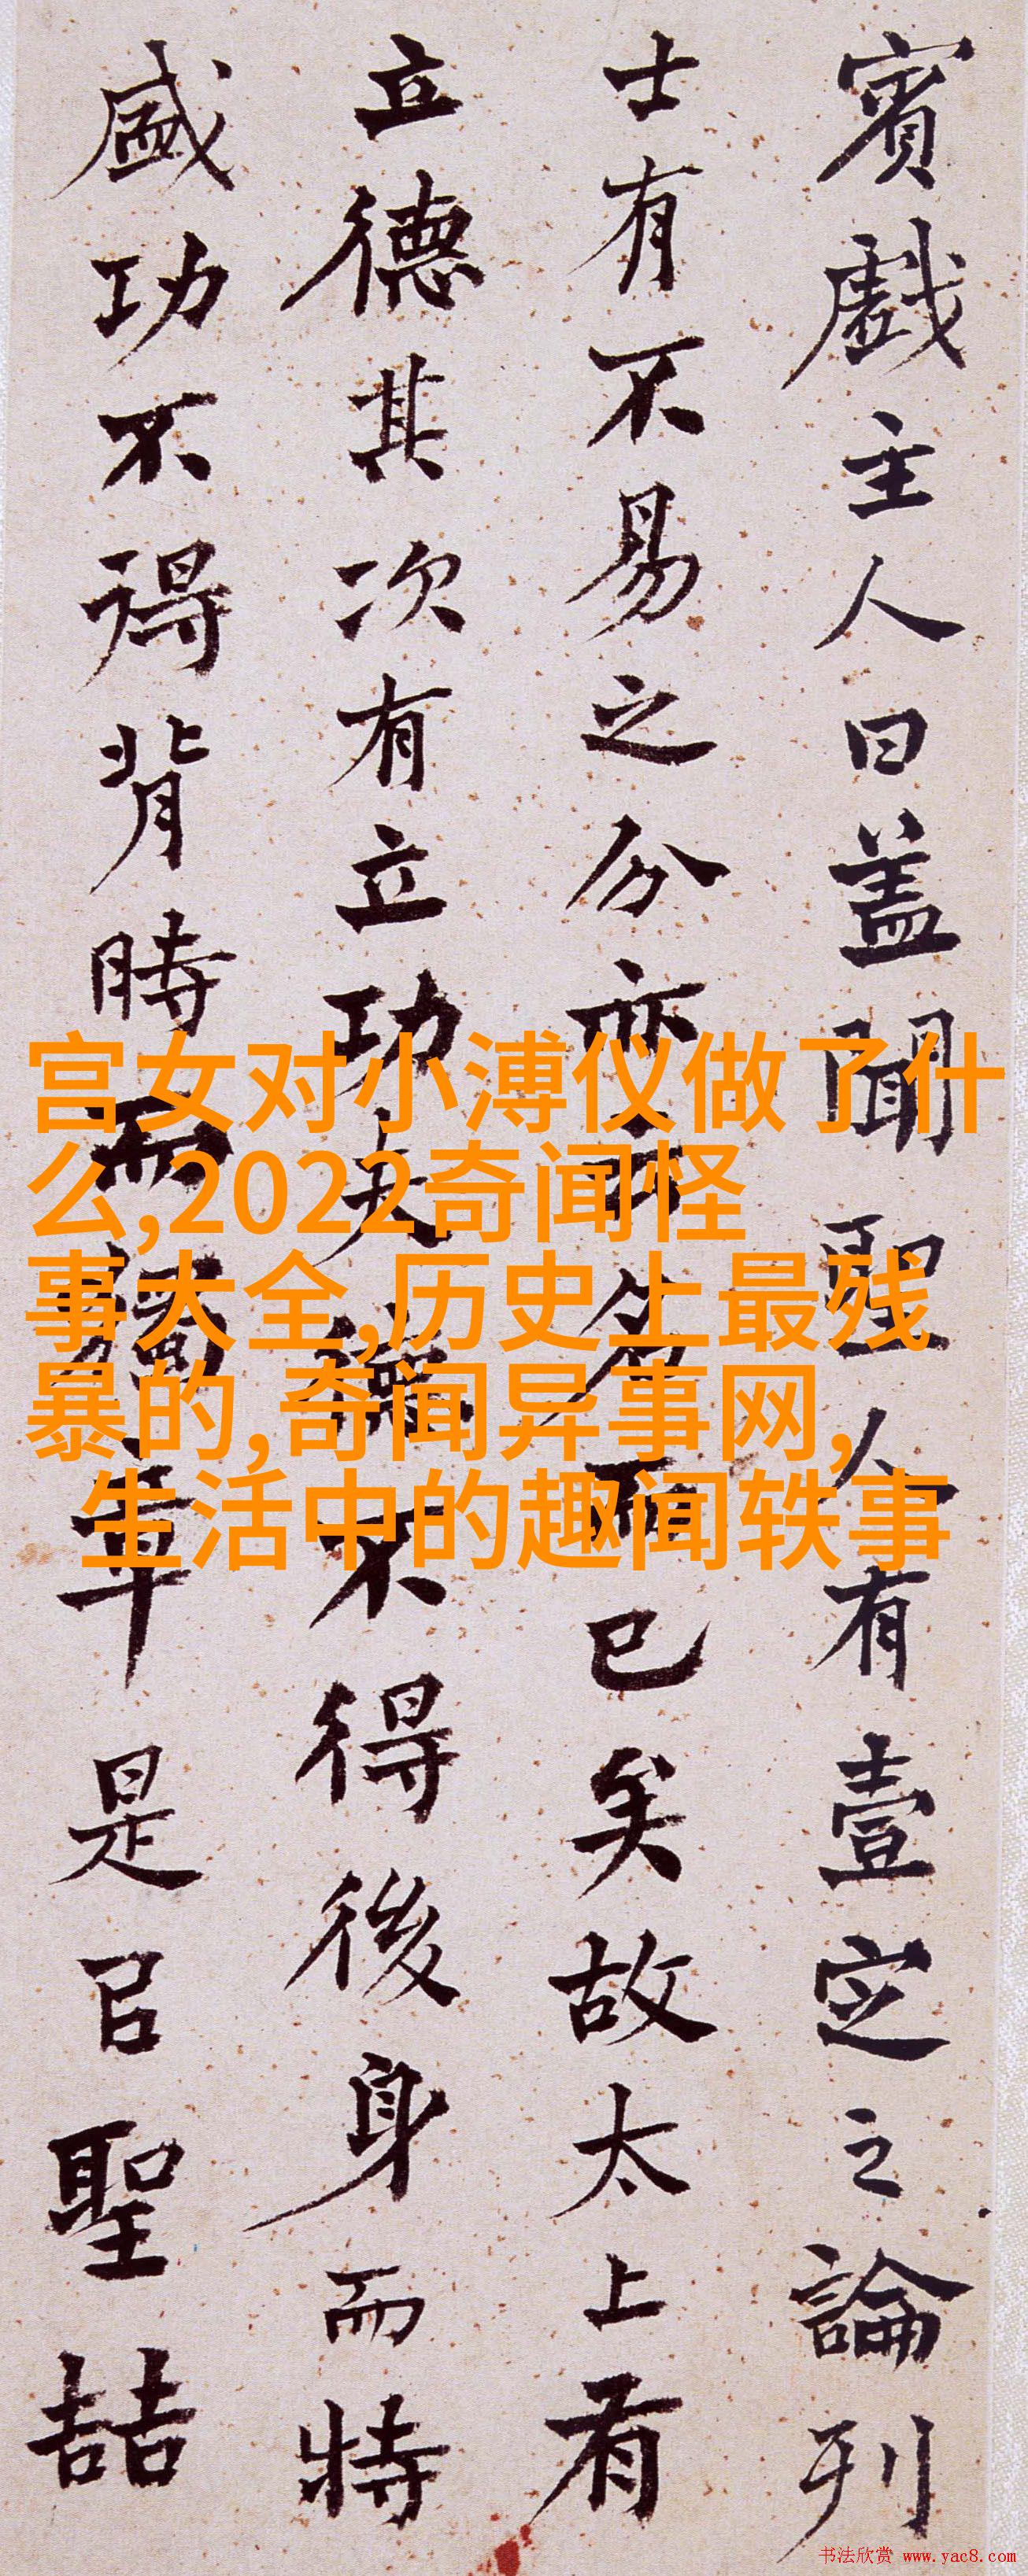 賓戲主人曰盖聞聖人有壹定之論列
士有不易之分亦云名而已矣故太上有
立德其次有立功夫德不得後身而特
盛功不得背時而獨章是㠯聖喆
宫女对小溥仪做了什
么,2022奇闻怪
事大全,历史上最残
暴的,奇闻异事网,
生活中的趣闻轶事
书法欣赏 www.yac8.com